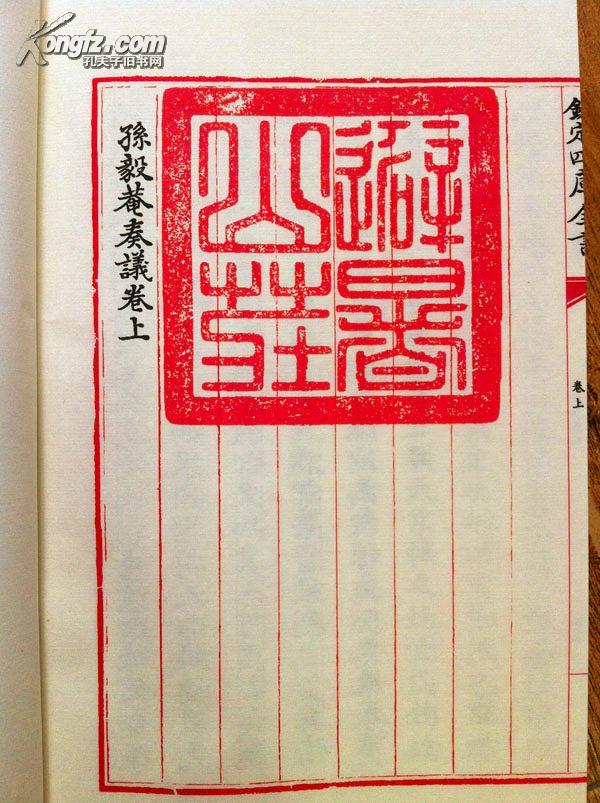 Kongfz.com
孔夫子旧书网
欽定四庫全書
卷上
避暑
山莊
孫毅菴奏議卷上